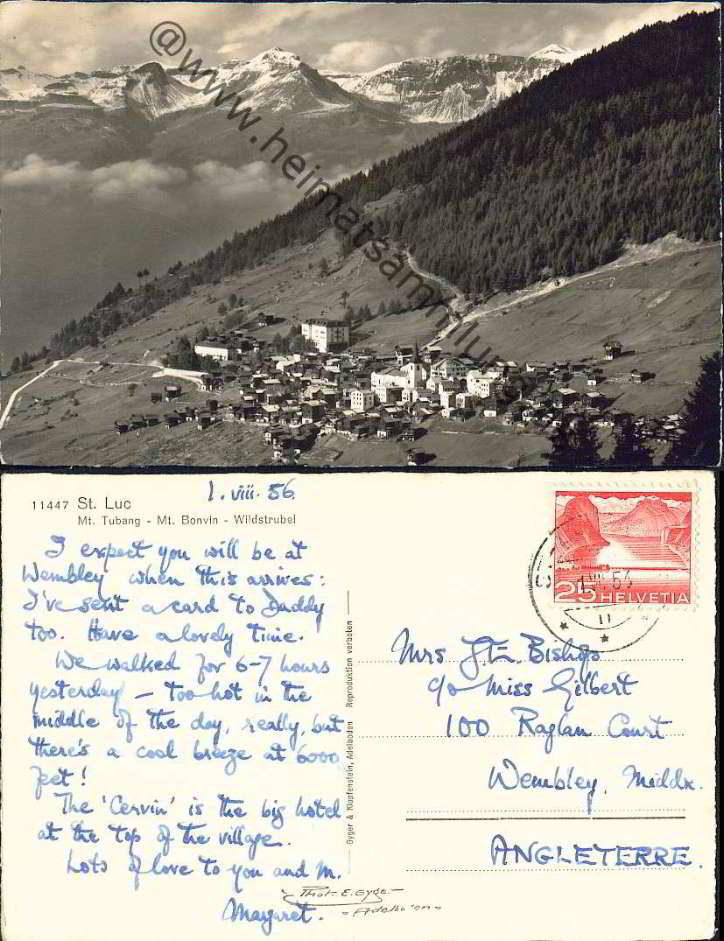 @www.heimatsammlu
11447 St. Luc
Mt. Tubang - Mt. Bonvin - Wildstrubel
1. viii. 56.
I expect you will be at
Wembley when this arrives:
I've sent a card to Daddy
too. Have a lovely time.
We walked for 6-7 hours
yesterday — too hot in the
middle of the day, really, but
there's a cool breeze at 6000
feet!
The 'Cervin' is the big hotel
at the top of the village.
Lots of love to you and M.
Margaret.
Gyger & Klopfenstein, Adelboden Reproduktion verboten
Phot. E. Gyger
- Adelboden -
25 HELVETIA
Mrs J.E. Bishop
c/o Miss Gilbert
100 Raglan Court
Wembley, Middx.
ANGLETERRE.